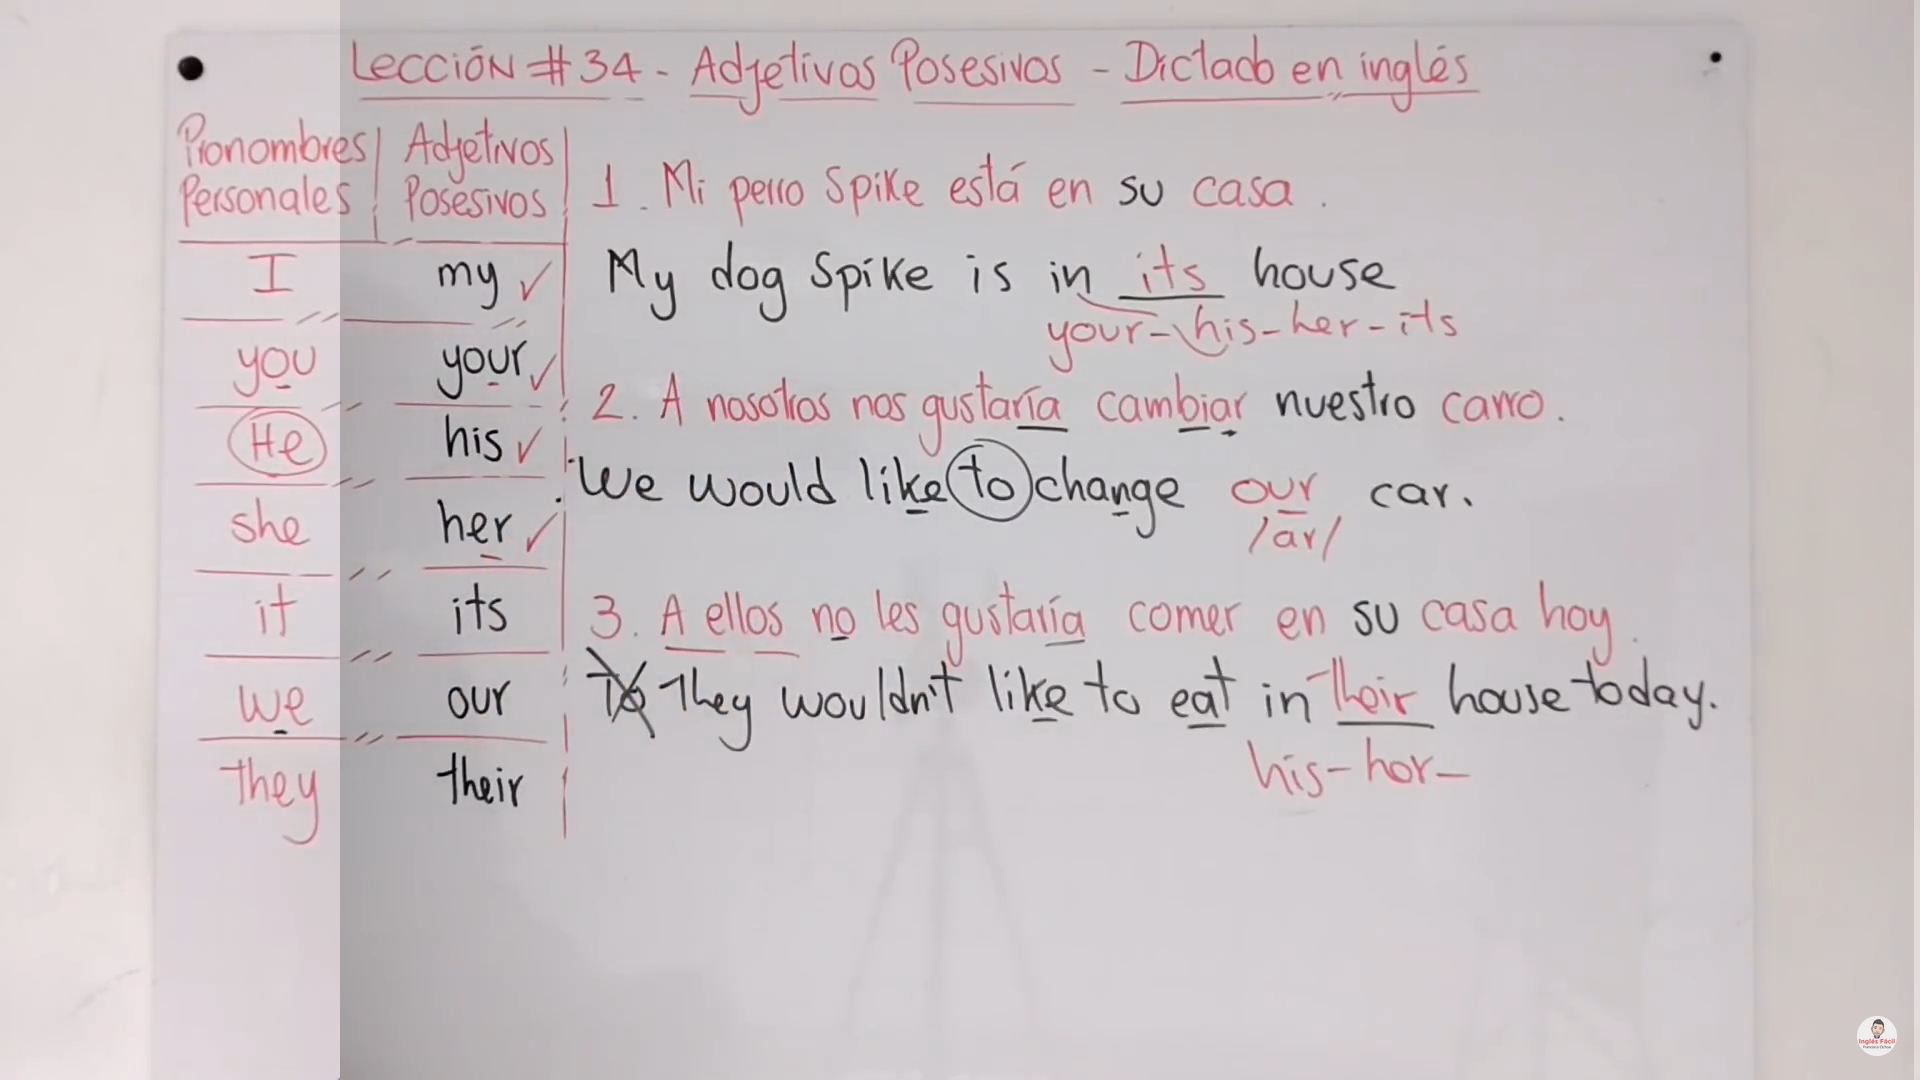 Lección # 34 - Adjetivos Posesivos - Dictado en inglés
Pronombres Personales | Adjetivos Posesivos
I my ✓
you your ✓
He his ✓
she her ✓
it its
we our
they their
1. Mi perro Spike está en su casa.
My dog Spike is in its house
your-his-her-its
2. A nosotros nos gustaría cambiar nuestro carro.
We would like to change our car.
/ar/
3. A ellos no les gustaría comer en su casa hoy.
They wouldn't like to eat in their house today.
his-her-
Inglés Fácil